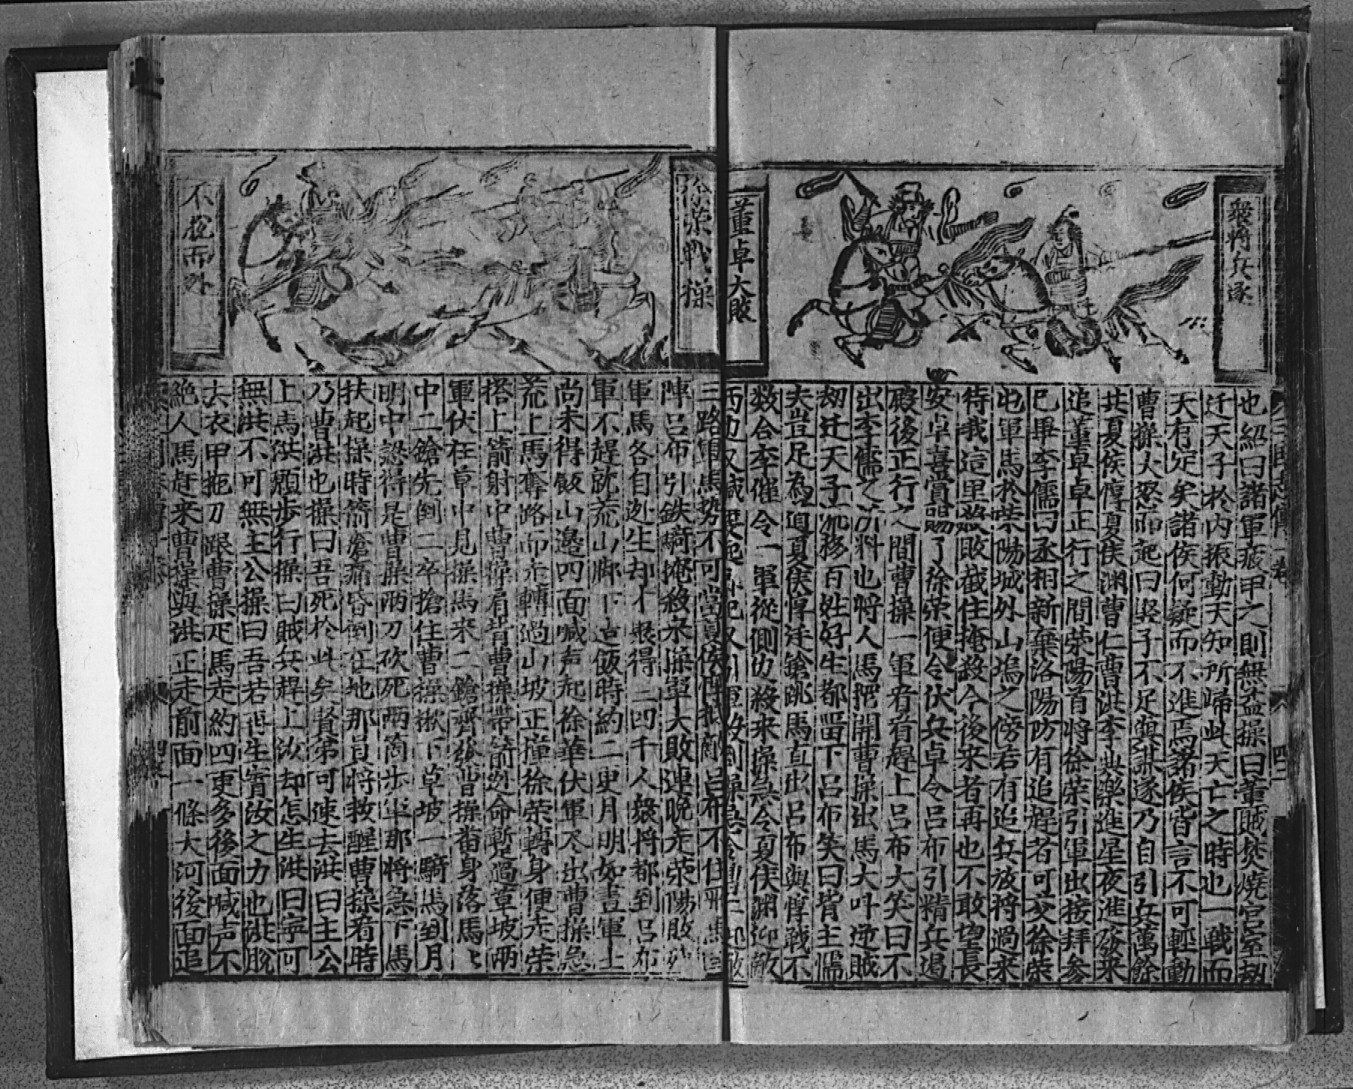 衆將兵逐
董卓大敗
也紹曰諸軍疲甲之則無益操曰董賊焚燒宫室刼
迁天子於内振動天知所歸此天亡之時也一戰而
天有定矣諸侯何疑而不進焉諸侯皆言不可輕動
曹操大怒而起曰竪子不足與謀遂乃自引兵萬餘
共夏侯惇夏侯渊曹仁曹洪李典樂進星夜進發來
追董卓卓正行之間荣陽首將徐荣引軍出接拜參
已畢李儒曰丞相新棄洛陽防有追趕者可交徐荣
屯軍馬於荣陽城外山塢之傍若有追兵放將過來
待我這里殺敗截住掩殺今後來者再也不敢望長
安卓喜賞賜了徐荣便令伏兵卓令吕布引精兵遏
殿後正行之間曹操一軍看看趕上吕布大笑曰不
出李儒之所料也將人馬擺開曹操出馬大叫逆賊
刼迁天子流移百姓好生都留下吕布笑曰背主懦
夫豈足為道夏侯惇
挺鎗跳馬直出吕布與惇戰不
數合李傕令一軍從側边殺來操急令夏侯渊迎敵
西边又喊
徐荣戰操
不
而
三路軍馬勢不可當夏侯惇抵敵吕布不住
陣吕布引鉄騎掩殺來操軍大敗連晚走荣陽
軍馬各自逃生却才娶得三四千人衆將都到吕布
軍不趕就荒山脚下造飯時約二更月明如晝軍士
尚未得飯山邊四面喊声起徐華伏軍尽出曹操急
荒上馬奪路而走轉過山坡正撞徐荣轉身便走荣
搭上箭射中曹操肩背曹操帶箭逃命暫過草坡兩
軍伏在草中見操馬來二鎗齊發曹操番身落馬
中二鎗先倒二卒搶住曹操揪下草坡一騎馬到月
明中認得是曹操兩刀砍死兩箇步軍那將急下馬
扶起操時箭瘡痛昏倒在地那員將救醒曹操看時
乃曹洪也操曰吾死於此矣賢弟可速去洪曰主公
上馬洪願步行操曰賊兵趕上汝却怎生洪曰寧可
無洪不可無主公操曰吾若再生實汝之力也洪脫
去衣甲拖刀跟曹操疋馬走約四更多後面喊声不
絶人馬赶來曹操與洪正走前面一條大河後面追